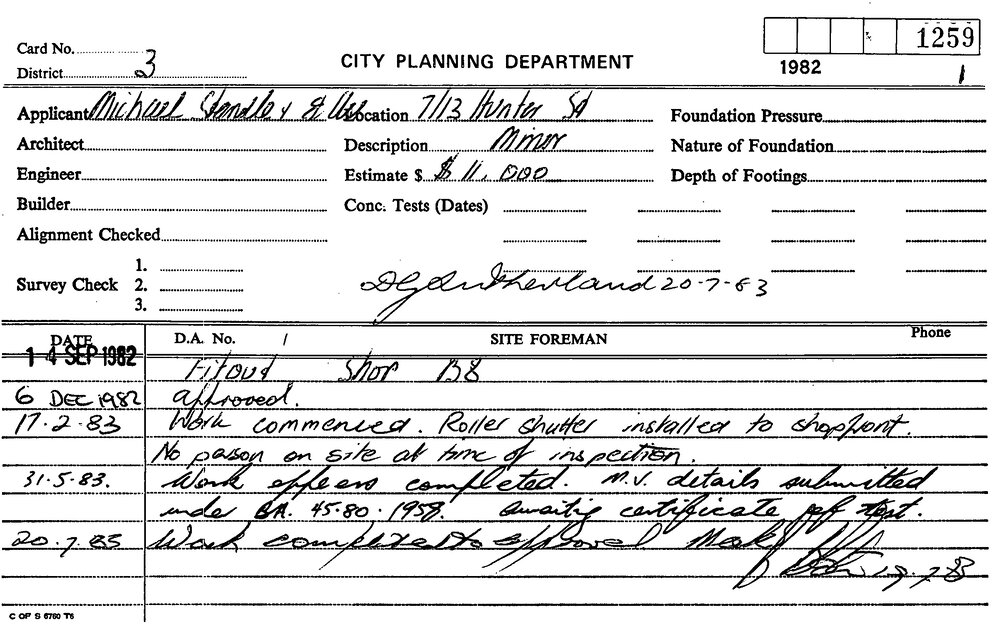 1259
Card No.
District 3
CITY PLANNING DEPARTMENT
1982
1
Applicant Michael Standley & Ass Location 7/13 Hunter St
Foundation Pressure
Architect
Description Minor
Nature of Foundation
Engineer
Estimate $ $ 11.000
Depth of Footings
Builder
Conc. Tests (Dates)
Alignment Checked
Survey Check 1.
2.
3.
Sutherland 20-7-83
DATE D.A. No. / SITE FOREMAN Phone
14 SEP 1982 Fitout Shop B8
6 DEC 1982 approved.
17.2.83 Work commenced. Roller shutter installed to shopfront.
No person on site at time of inspection.
31.5.83. Work appears completed. M.V. details submitted
under BA. 45.80.1959. Awaiting certificate of test.
20.7.83 Work completed to approval
19.7.8
C OF S 6760 T6